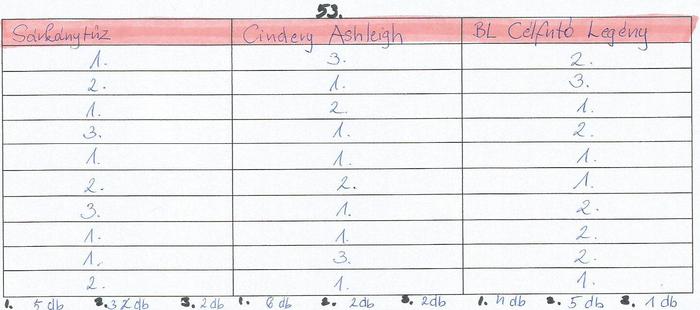 53.
Sárkánytűz Cindery Ashleigh BL Célfutó Legény
1. 3. 2.
2. 1. 3.
1. 2. 1.
3. 1. 2.
1. 1. 1.
2. 2. 1.
3. 1. 2.
1. 1. 2.
1. 3. 2.
2. 1. 1.
1. 5 db 2. 3 db 3. 2 db 1. 6 db 2. 2 db 3. 2 db 1. 4 db 2. 5 db 3. 1 db